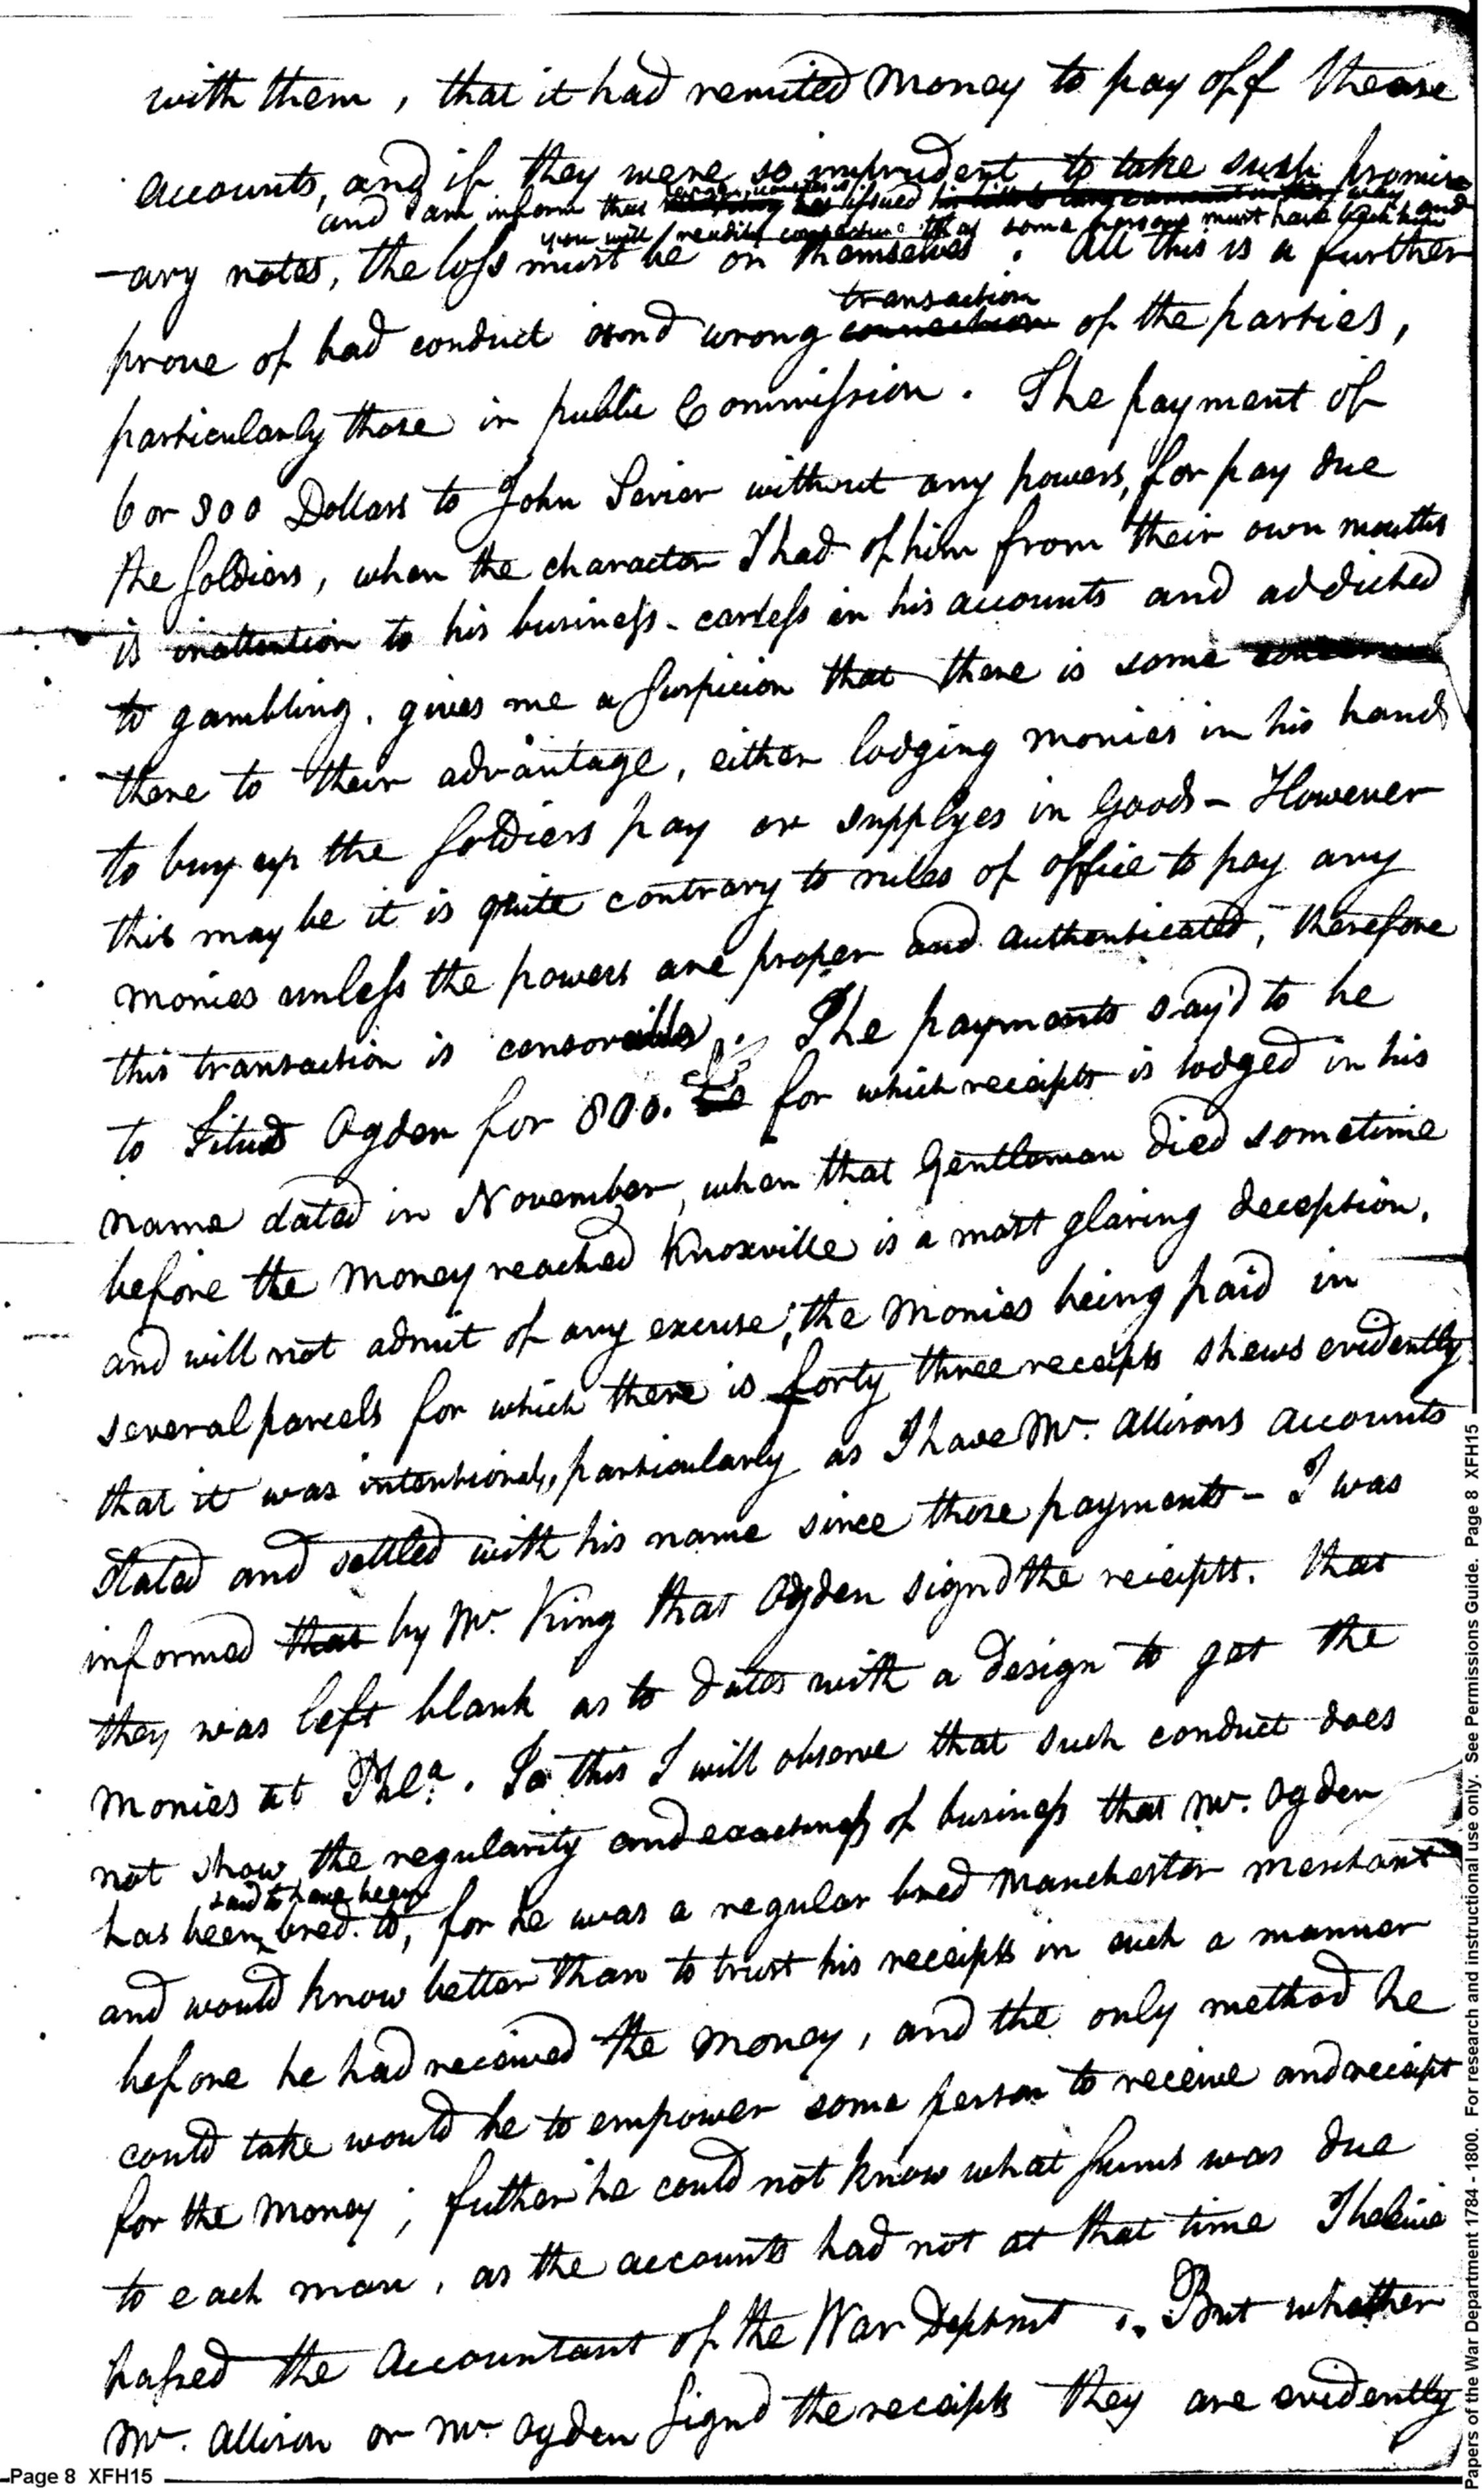 with them, that it had remited money to pay off these
accounts, and if they were so imprudent to take such promiss
and I am inform that issued
you will readily conjecture that some persons must have
-ary notes, the loss must be on themselves. All this is a further
transaction
prove of bad conduct and wrong connection of the parties,
particularly those in public Commission. The payment of
6 or 800 Dollars to John Sevier without any powers, for pay due
the soldiers, when the character I had of him from their own mouths
is inattention to his business - careless in his accounts and addicted
to gambling, gives me a suspicion that there is some
there to their advantage, either lodging monies in his hands
to buy up the soldiers pay or supplyes in Goods - However
this may be it is quite contrary to rules of office to pay any
monies unless the powers are proper and authenticated, therefore
this transaction is censorable. The payments say'd to be
to Titus Ogden for 800. for which receipts is lodged in his
name dated in November, when that Gentleman died sometime
before the money reached Knoxville is a most glaring deception,
and will not admit of any excuse; the monies being paid in
several parcels for which there is forty three receipts shews evidently
that it was intentional, particularly as I have Mr. Allisons accounts
Stated and settled with his name since those payments - I was
informed that by Mr. King that Ogden signd the receipts. that
they was left blank as to dates with a design to get the
monies at Phla. To this I will observe that such conduct does
not show the regularity and exactness of business that Mr. Ogden
said to have been
has been bred to, for he was a regular bred Manchester merchant
and would know better than to trust his receipts in such a manner
before he had received the money, and the only method he
could take would be to empower some person to receive and receipt
for the money; futher he could not know what sums was due
to each man, as the accounts had not at that time I beleive
passed the Accountant of the War Depmt. But whether
Mr. Allison or Mr. Ogden signd the receipts they are evidently
Page 8 XFH15
Papers of the War Department 1784 - 1800. For research and instructional use only. See Permissions Guide. Page 8 XFH15